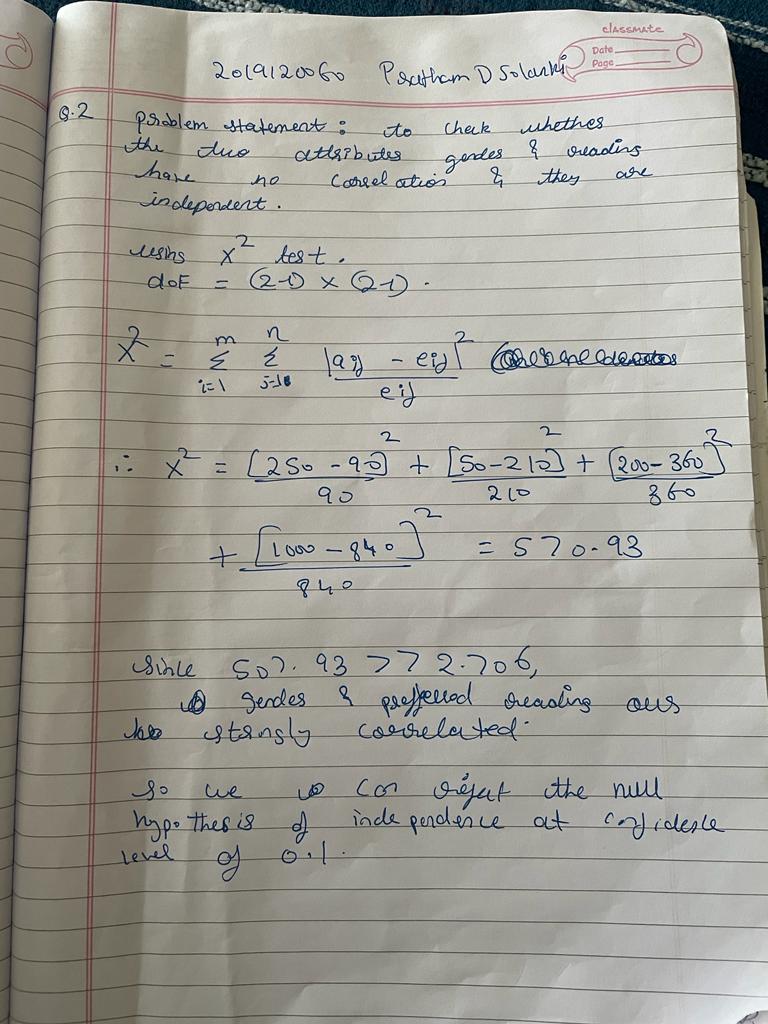 classmate
Date
Page
2019120060 Pratham D Solanki
Q.2 problem statement : to check whether
the two attributes gender & reading
have no correlation & they are
independent.
using X² test.
doF = (2-1) × (2-1).
X² = m Σ i=1 n Σ j=1 |aij - eij|² / eij
∴ X² = [250 - 90]² / 90 + [50-210]² / 210 + [200-360]² / 360
+ [1000 - 840]² / 840 = 570.93
since 507.93 >> 2.706,
gender & preffered reading are
strongly correlated.
so we can reject the null
hypothesis of independence at confidence
level of 0.1.